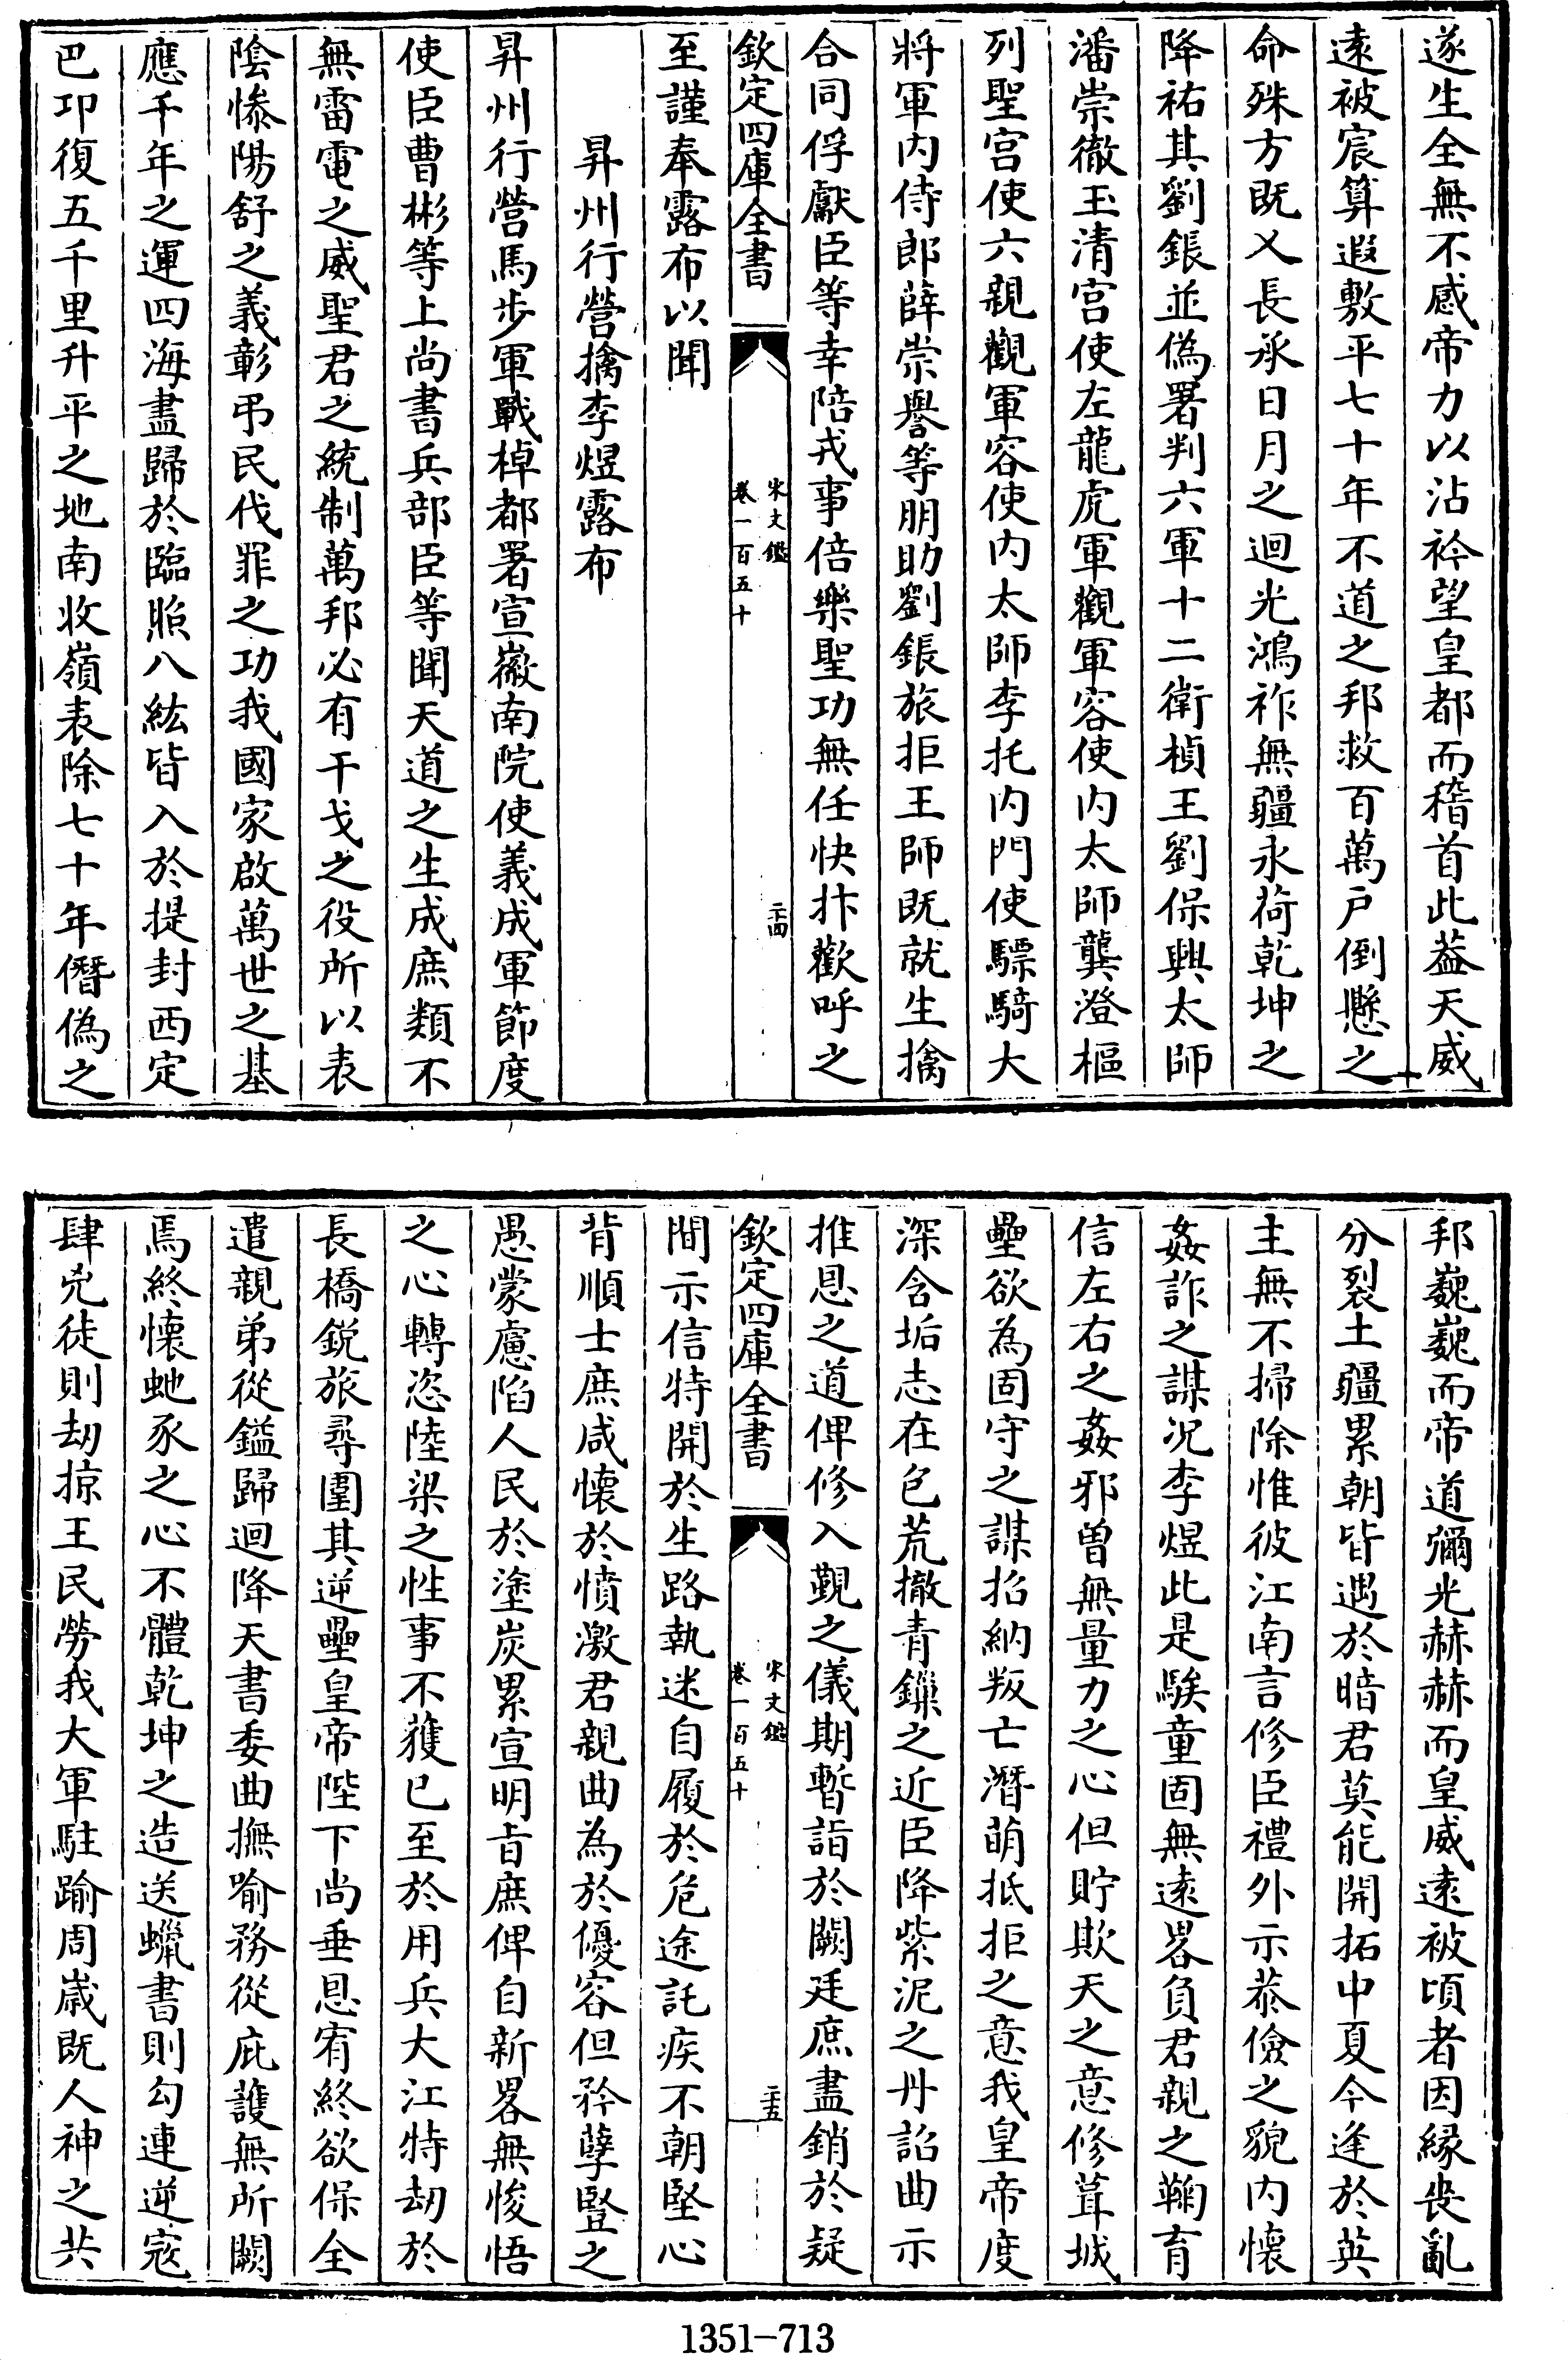 遂生全無不感帝力以沾衿望皇都而稽首此葢天威
逺被宸算遐敷平七十年不道之邦救百萬户倒懸之
命殊方既乂長承日月之迴光鴻祚無疆永荷乾坤之
降祐其劉鋹並偽署判六軍十二衛楨王劉保興太師
潘崇徹玉清宫使左龍虎軍觀軍容使内太師龔澄樞
列聖宫使六親觀軍容使内太師李托内門使驃騎大
將軍内侍郎薛崇譽等朋助劉鋹旅拒王師既就生擒
合同俘獻臣等幸陪戎事倍樂聖功無任快抃歡呼之
欽定四庫全書
宋文鑑
卷一百五十
二十四
至謹奉露布以聞
昇州行營擒李煜露布
昇州行營馬步軍戰棹都署宣徽南院使義成軍節度
使臣曹彬等上尚書兵部臣等聞天道之生成庶類不
無雷電之威聖君之統制萬邦必有干戈之役所以表
陰慘陽舒之義彰弔民伐罪之功我國家啟萬世之基
應千年之運四海盡歸於臨照八紘皆入於提封西定
巴邛復五千里升平之地南收嶺表除七十年僭偽之
邦巍巍而帝道彌光赫赫而皇威逺被頃者因縁喪亂
分裂土疆累朝皆遇於暗君莫能開拓中夏今逢於英
主無不掃除惟彼江南言修臣禮外示恭儉之貌内懷
姦詐之謀况李煜此是騃童固無逺畧負君親之鞠育
信左右之姦邪曽無量力之心但貯欺天之意修葺城
壘欲為固守之謀招納叛亡潛萌抵拒之意我皇帝度
深含垢志在包荒撤青鏁之近臣降紫泥之丹詔曲示
推恩之道俾修入覲之儀期暫詣於闕廷庶盡銷於疑
欽定四庫全書
宋文鑑
卷一百五十
二十五
間示信特開於生路執迷自履於危途託疾不朝堅心
背順士庶咸懷於憤激君親曲為於優容但矜孽豎之
愚蒙慮陷人民於塗炭累宣明旨庶俾自新畧無悛悟
之心轉恣陸梁之性事不獲已至於用兵大江特刼於
長橋鋭旅尋圍其逆壘皇帝陛下尚垂恩宥終欲保全
遣親弟從鎰歸迴降天書委曲撫喻務從庇䕶無所闕
焉終懷虵豕之心不體乾坤之造送蠟書則勾連逆寇
肆兇徒則刼掠王民勞我大軍駐踰周歲既人神之共
1351-713